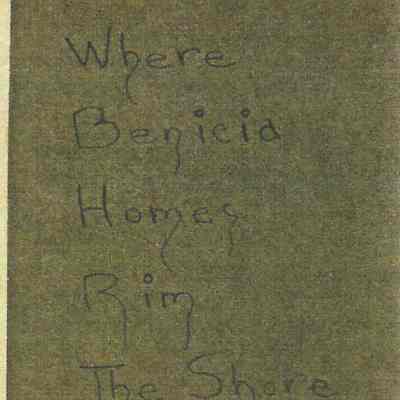 Where
Benicia
Homes
Rim
The Shore